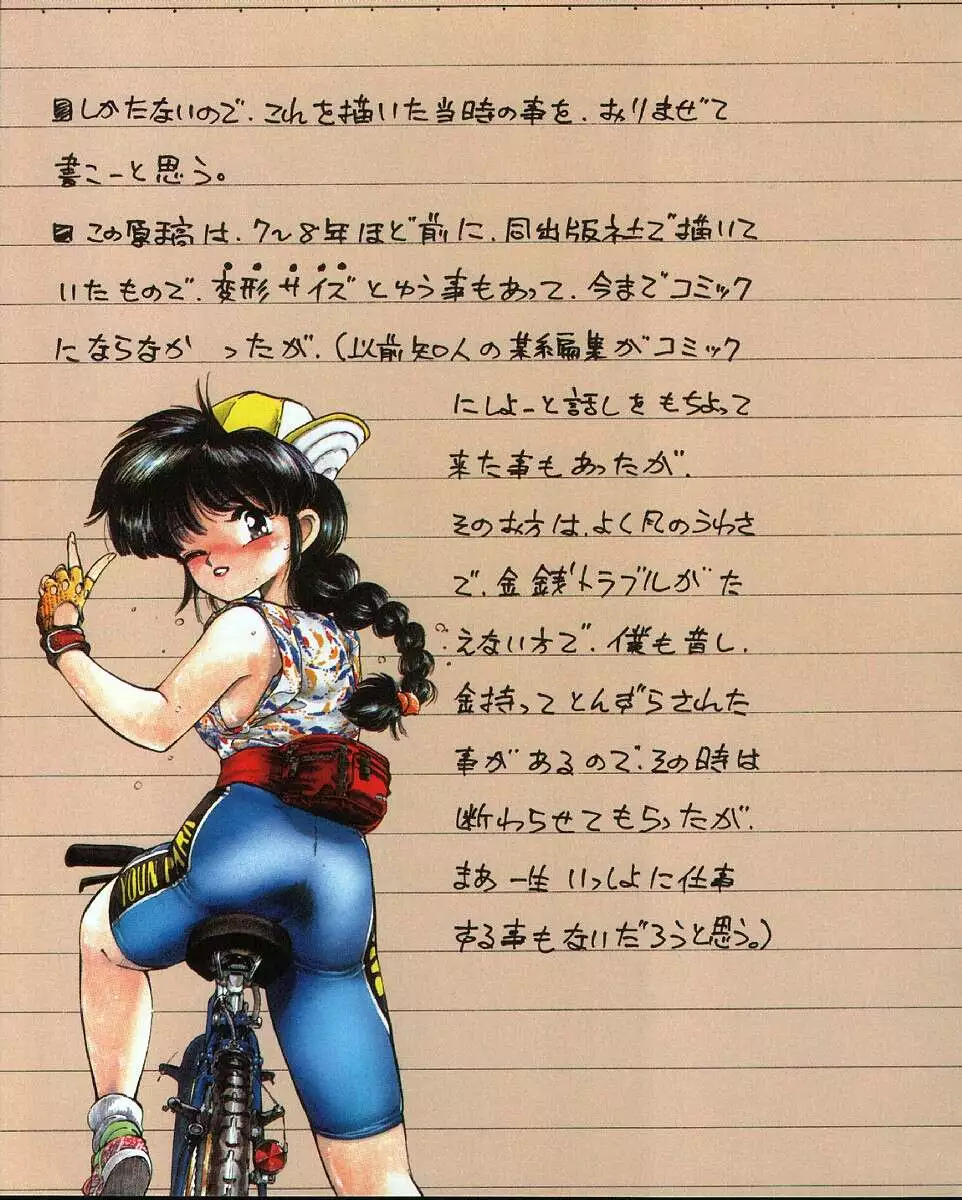 ■しかたないので、これを描いた当時の事を、おりまぜて
書こーと思う。
■この原稿は、7〜8年ほど前に、同出版社で描いて
いたもので、変形サイズとゆう事もあって、今までコミック
にならなかったが、(以前知人の某編集がコミック
にしよーと話しをもちよって
来た事もあったが、
そのお方は、よく凡のうわさ
で、金銭トラブルがた
えない方で、僕も昔し、
金持ってとんずらされた
事があるので、その時は
断わらせてもらったが、
まあ一生いっしょに仕事
する事もないだろうと思う。)
YOUN PARA